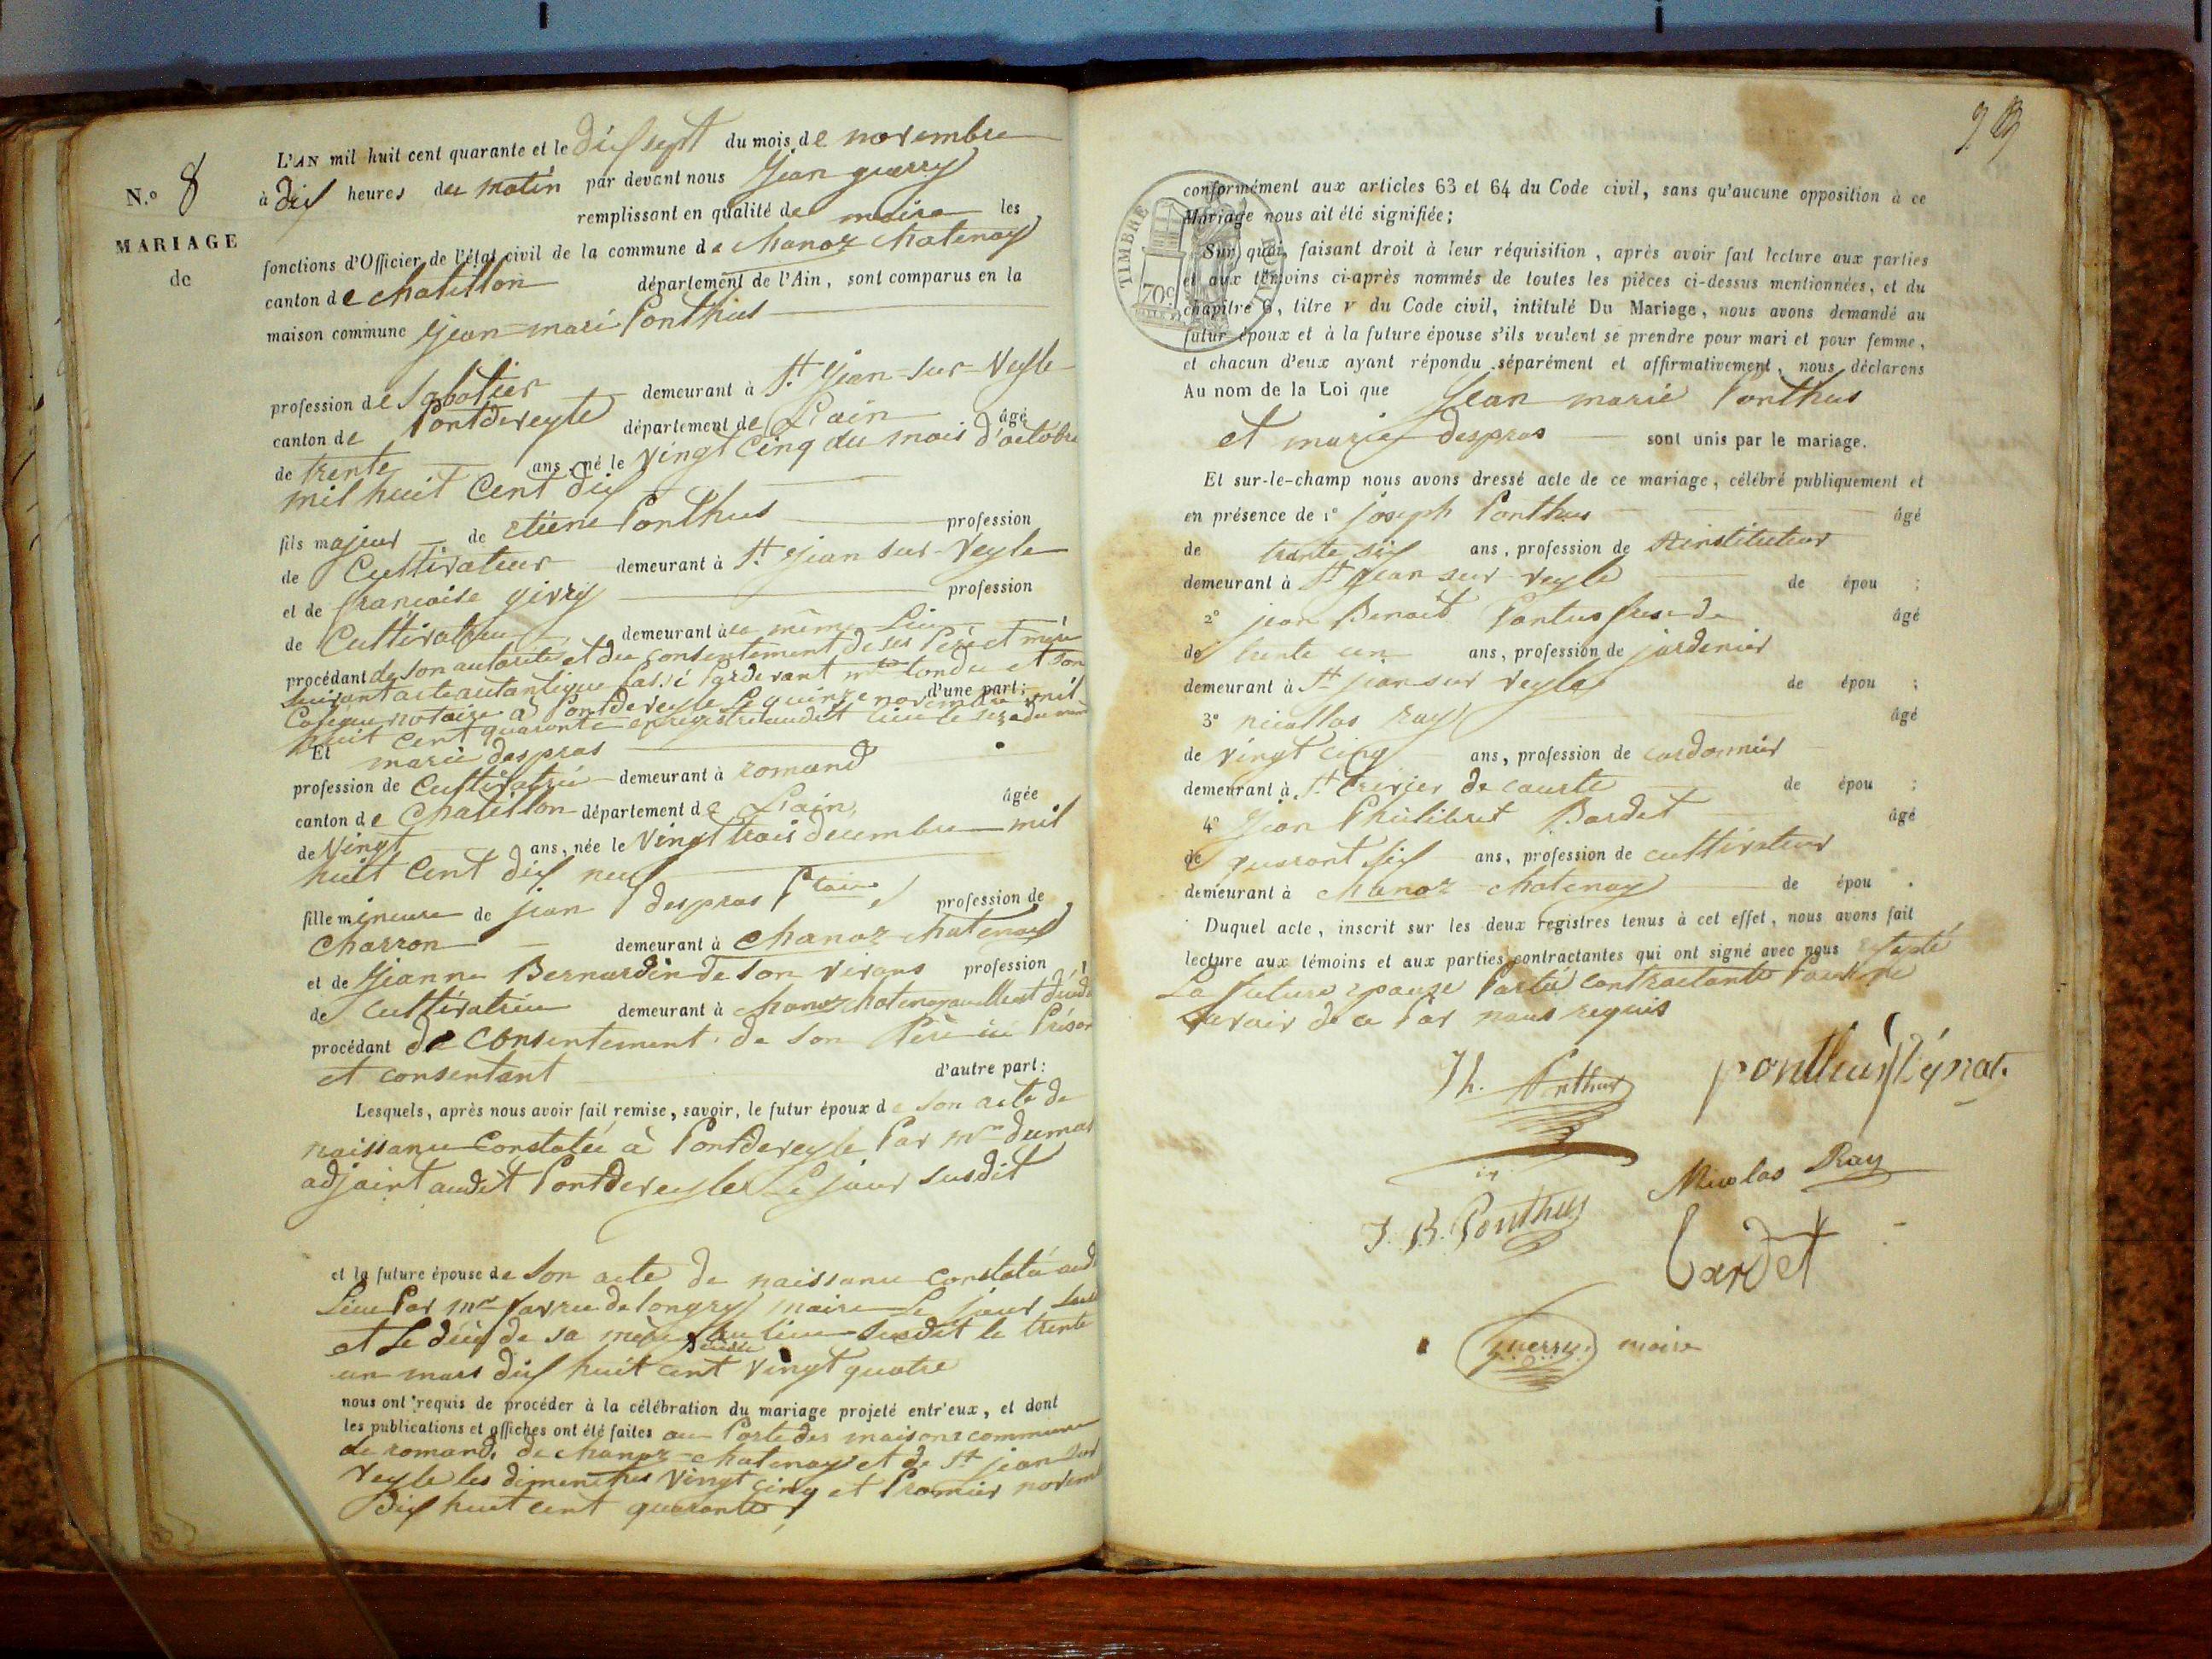 N.º 8
MARIAGE
de
L'AN mil huit cent quarante et le dix sept du mois de novembre
à dix heures du matin par devant nous Jean guerry
remplissant en qualité de maire les
fonctions d'Officier de l'état civil de la commune de chanoz chatenay
canton de chatillon département de l'Ain, sont comparus en la
maison commune Jean-marie Ponthus
profession de sabotier demeurant à St Jean-sur-Veyle
canton de Pontdeveyle département de L'ain âgé
de trente ans, né le vingt cinq du mois d'octobre
mil huit Cent dix
fils majeur de etiene Ponthus profession
de Cultivateur demeurant à St Jean sur-Veyle
et de francoise givry profession
de Cultivatrice demeurant à ce même Lieu
procédant de son autorité et du consentement de ses Père et mère
suivant acte autantique passé Pardevant
notaire à Pontdeveyle le quinze novembre mil d'une part;
huit cent quarante enregistré audit lieu le seize du
Et marie despras
profession de Cultivatrice demeurant à romand
canton de Chatillon département de L'ain, âgée
de Vingt ans, née le Vingt trois decembre mil
huit Cent dix neuf
fille mineure de jean despras profession de
Charron demeurant à Chanoz chatenay
et de Jeanne Bernardin de son vivans profession
de Cultivatrice demeurant à chanoz chatenay
procédant de consentement de son Père
et consentant d'autre part:
Lesquels, après nous avoir fait remise, savoir, le futur époux de son acte de
naissance constatée à Pontdeveyle Par mr dumas
adjoint audit Pontdeveyle Le jour susdit
et la future épouse de son acte de naissance constaté
Lieu Par mr favre de longry maire Le jour
et Le décé de sa mère au lieu susdit le trente
un mars dix huit cent vingt quatre
nous ont requis de procéder à la célébration du mariage projeté entr'eux, et dont
les publications et affiches ont été faites au Porte des maisons commune
de romand, de chanoz-chatenay et de St jean sur
Veyle les dimenches Vingt cinq et Premier novem
dix huit cent quarante
conformément aux articles 63 et 64 du Code civil, sans qu'aucune opposition à ce
Mariage nous ait été signifiée;
TIMBRE ROYAL
70c
Sur quoi, faisant droit à leur réquisition, après avoir fait lecture aux parties
et aux témoins ci-après nommés de toutes les pièces ci-dessus mentionnées, et du
chapitre 6, titre V du Code civil, intitulé Du Mariage, nous avons demandé au
futur époux et à la future épouse s'ils veulent se prendre pour mari et pour femme,
et chacun d'eux ayant répondu séparément et affirmativement, nous déclarons
Au nom de la Loi que Jean marie Ponthus
et marie despras sont unis par le mariage.
Et sur-le-champ nous avons dressé acte de ce mariage, célébré publiquement et
en présence de 1º joseph Ponthus âgé
de trante six ans, profession de instituteur
demeurant à St Jean sur veyle de épou ;
2º jean Benoit Pontus frere de âgé
de trente un ans, profession de jardenier
demeurant à St jean sur veyle de épou ;
3º nicollas ray âgé
de vingt cinq ans, profession de cordonnier
demeurant à St trivier de courte de épou ;
4º Jean Philibert Bardet âgé
de quarant six ans, profession de cultivateur
demeurant à chanoz-chatenay de épou .
Duquel acte, inscrit sur les deux registres tenus à cet effet, nous avons fait
lecture aux témoins et aux parties contractantes qui ont signé avec nous
La future epouse Partie contractante
savoir de ce Par nous requis
Th. Ponthus
J. B. Ponthus
Nicolas Ray
Bardet
guerry maire